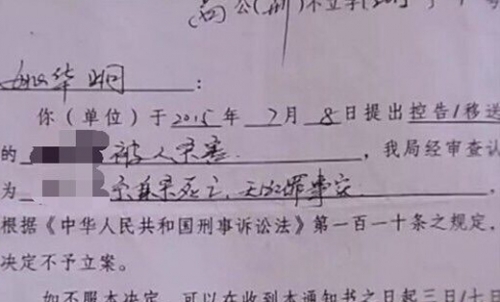 公(刑)不立字
华:
你(单位)于2015年7月8日提出控告/移送
的 被人杀害 ,我局经审查认
为 死亡,无犯罪事实 。
根据《中华人民共和国刑事诉讼法》第一百一十条之规定,
决定不予立案。
如不服本决定,可以在收到本通知书之日起三日/七日